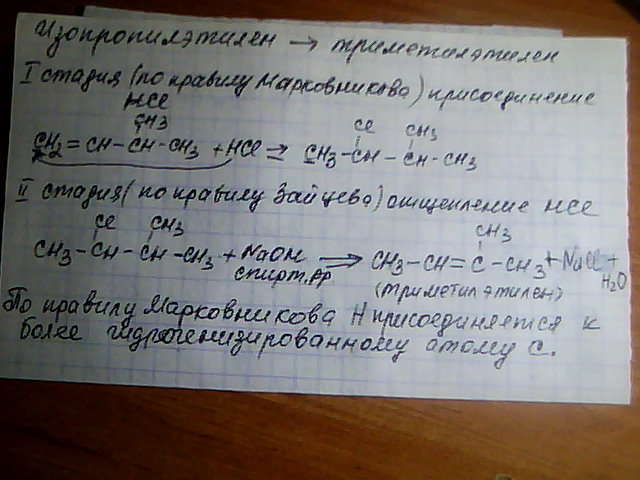 Изопропилэтилен → триметилэтилен
I стадия (по правилу Марковникова) присоединение
HCl
CH3
CH2 = CH - CH - CH3 + HCl ⇒ CH3 - CH - CH - CH3
Cl CH3
II стадия (по правилу Зайцева) отщепление HCl
Cl CH3
CH3 - CH - CH - CH3 + NaOH ⇒ CH3 - CH = C - CH3 + NaCl + H2O
CH3
спирт. р-р
(триметилэтилен)
По правилу Марковникова H присоединяется к
более гидрогенизированному атому C.